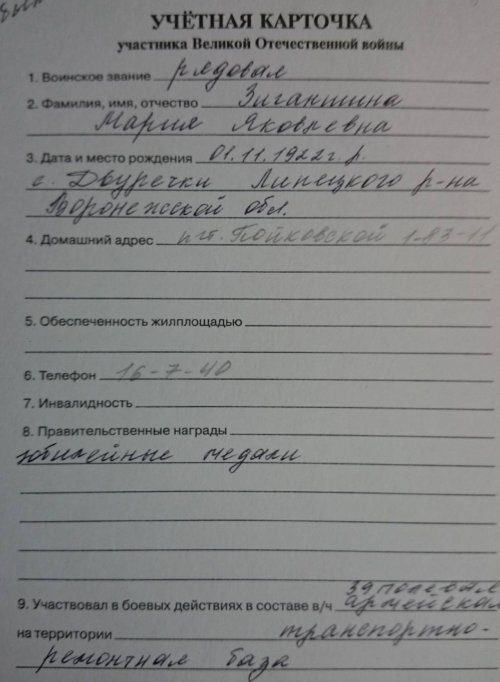 УЧЁТНАЯ КАРТОЧКА
участника Великой Отечественной войны
1. Воинское звание рядовая
2. Фамилия, имя, отчество Зиганшина
Мария Яковлевна
3. Дата и место рождения 01.11.1922г.р.
с. Двуречки Липецкого р-на
Воронежской обл.
4. Домашний адрес пгт. Пойковской 1-83-11
5. Обеспеченность жилплощадью
6. Телефон 16-7-40
7. Инвалидность
8. Правительственные награды
юбилейные медали
39 полевая
9. Участвовал в боевых действиях в составе в/ч армейская
на территории транспортно-
ремонтная база